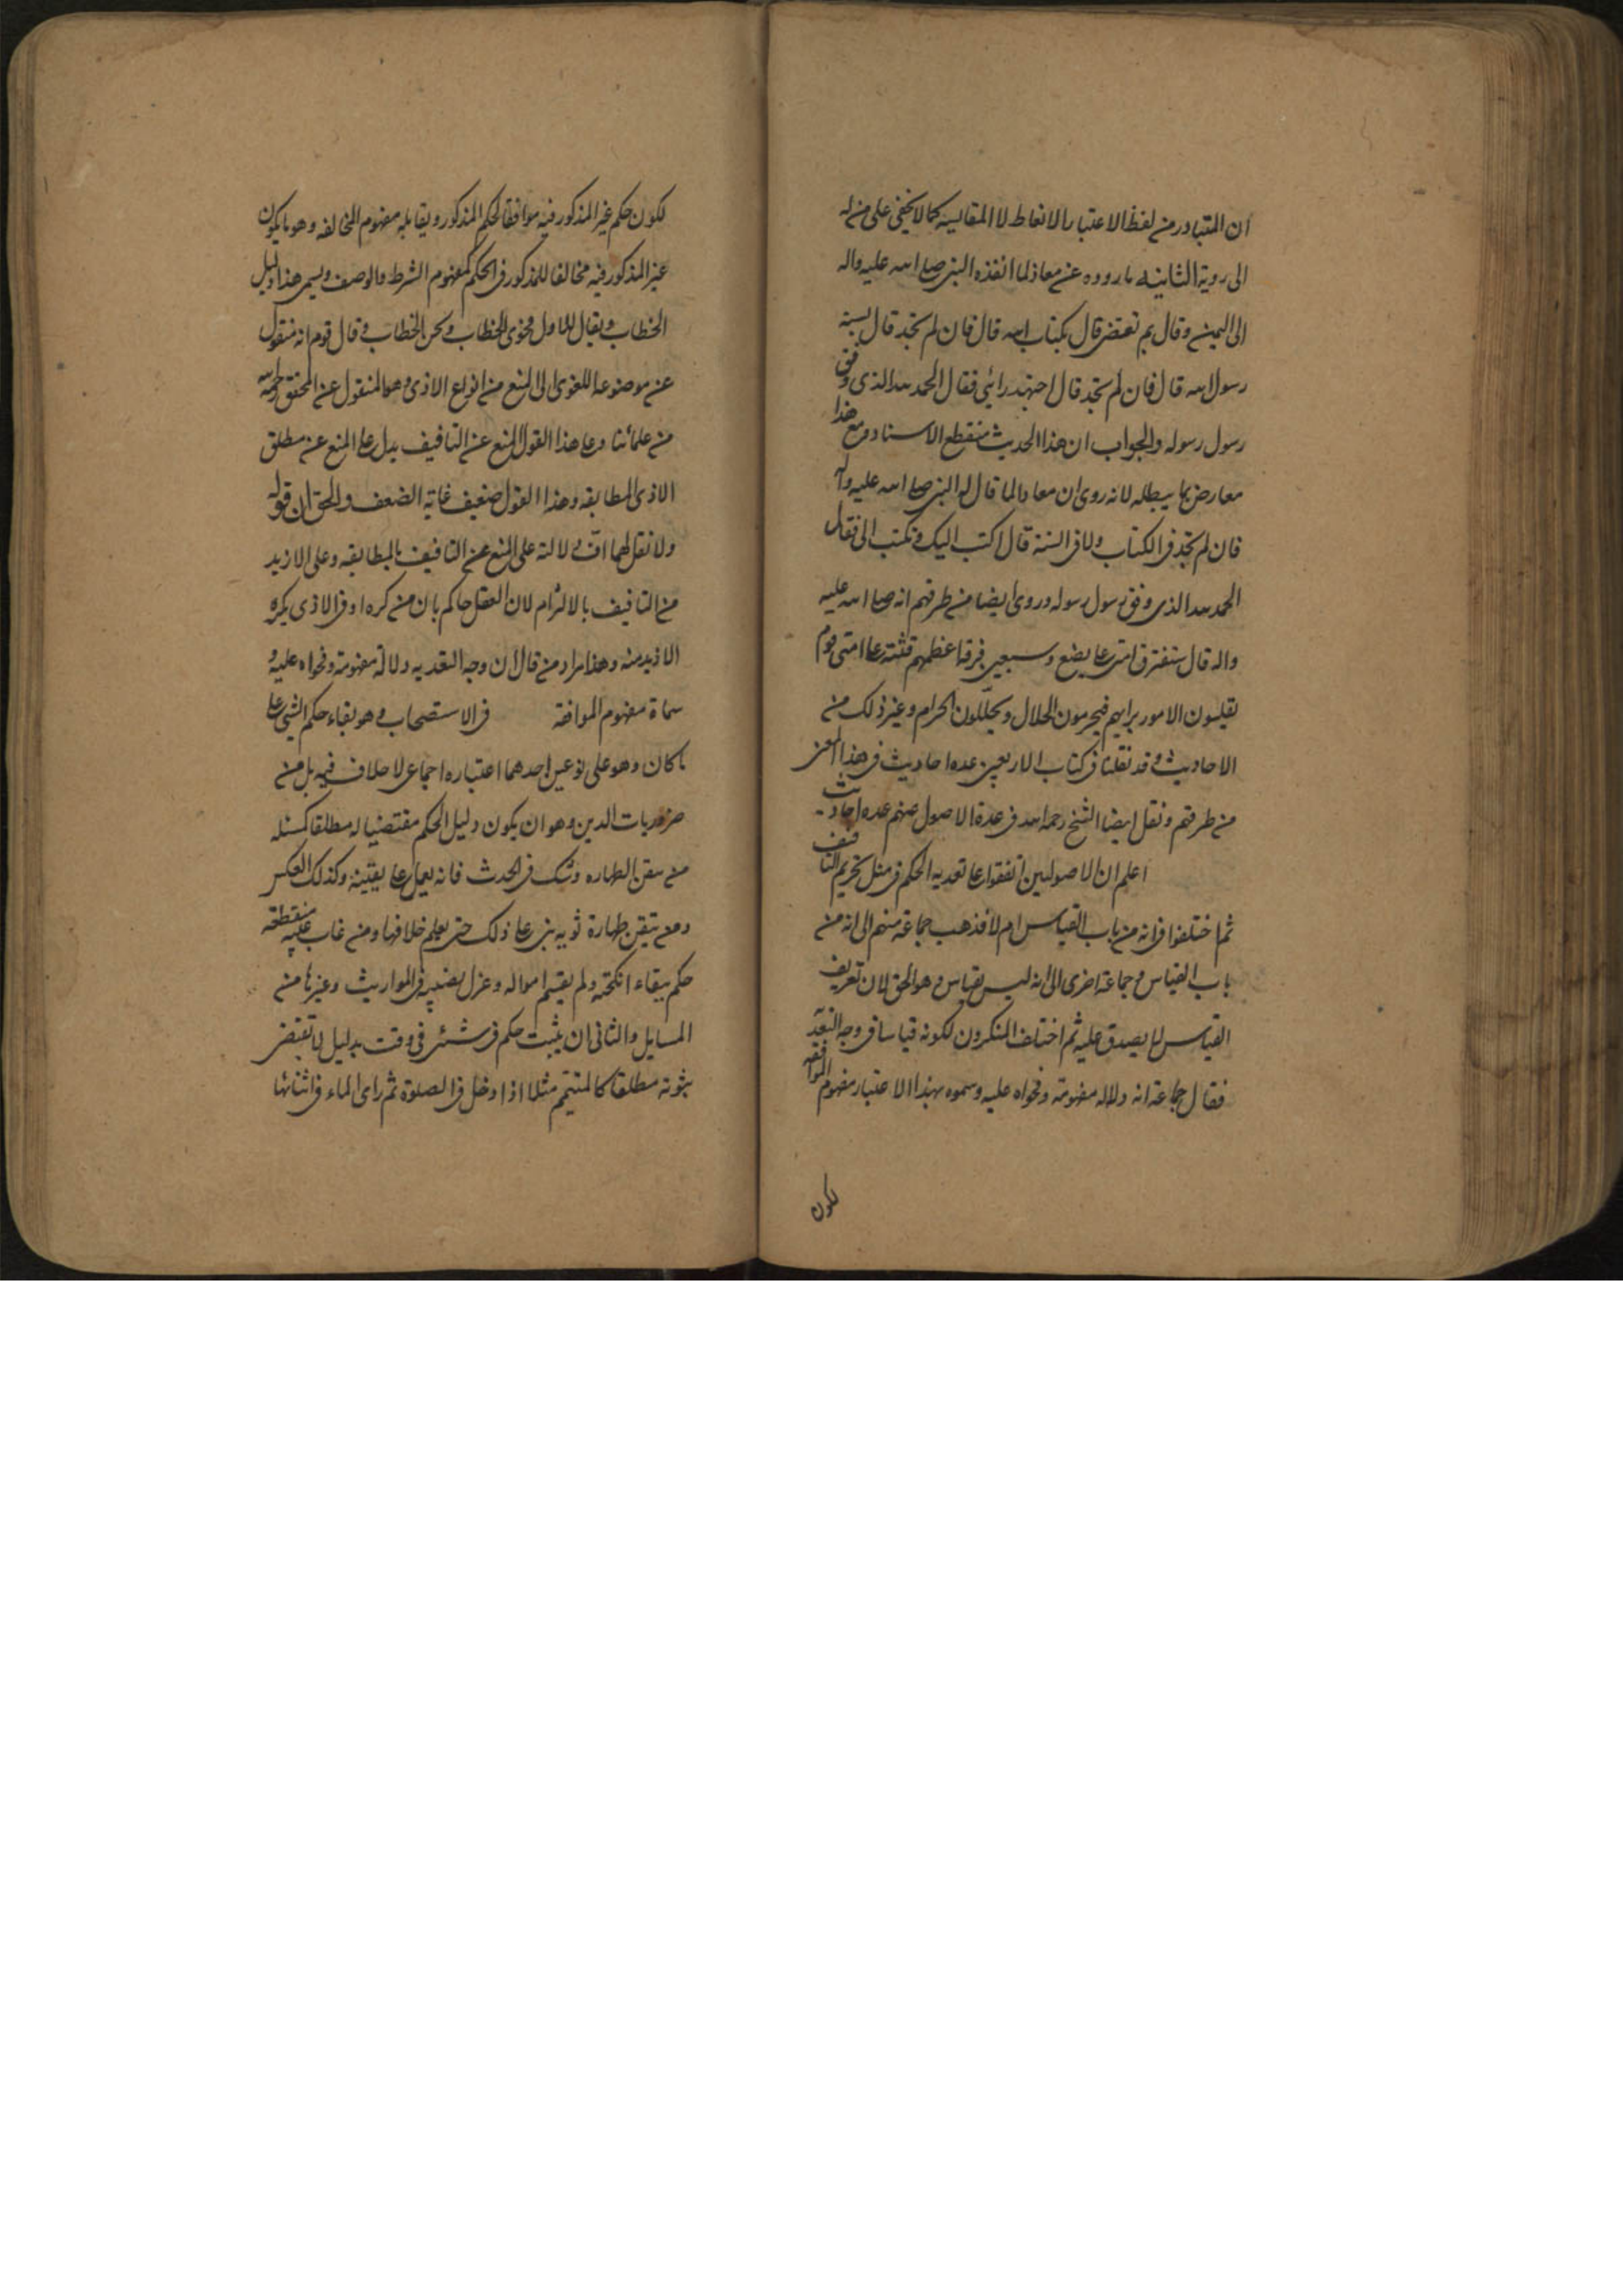 ان المتبادر من لفظ الاعتبار الاتعاظ لا المقايسه كما لا يخفى على من له
الى روية الثانيه ما رووه عن معاذ لما انفذه النبى صلى الله عليه واله
الى اليمن وقال بم تقضى قال بكتاب الله قال فان لم تجد قال بسنة
رسول الله قال فان لم تجد قال اجتهد رائى فقال الحمد لله الذى وفق
رسول رسوله والجواب ان هذا الحديث منقطع الاسناد ومع هذا
معارض بما يبطله لانه روى ان معاذا لما قال له النبى صلى الله عليه واله
فان لم تجد فى الكتاب ولا فى السنة قال اكتب اليك وتكتب الى فقال
الحمد لله الذى وفق رسول رسوله وروى ايضا من طرقهم انه صلى الله عليه
واله قال ستفترق امتى على بضع وسبعين فرقة اعظمهم فتنة على امتى قوم
يقيسون الامور برايهم فيحرمون الحلال ويحللون الحرام وغير ذلك من
الاحاديث وقد نقلنا فى كتاب الاربعين عده احاديث فى هذا المعنى
من طرقهم ونقل ايضا الشيخ رحمه الله فى عدة الاصول عنهم عده احاديث
اعلم ان الاصوليين اتفقوا على تعديه الحكم فى مثل تحريم التافيف
ثم اختلفوا فى انه من باب القياس ام لا فذهب جماعة منهم الى انه من
باب القياس وجماعة اخرى الى انه ليس بقياس وهو الحق لان تعريف
القياس لا يصدق عليه ثم اختلف المنكرون لكونه قياسا فى وجه التعديه
فقال جماعة انه دلاله مفهومة وفحواه عليه وسموه بهذا الاعتبار مفهوم الموافقه
لكون
لكون حكم غير المذكور فيه موافقا لحكم المذكور ويقابله مفهوم المخالفه وهو ما يكون
غير المذكور فيه مخالفا للمذكور فى الحكم كمفهوم الشرط والوصف ويسمى هذا دليل
الخطاب ويقال للاول فحوى الخطاب ولحن الخطاب وقال قوم انه منقول
عن موضوعه اللغوى الى المنع من انواع الاذى وهو المنقول عن المحقق رحمه الله
من علمائنا وعلى هذا القول المنع عن التافيف يدل على المنع عن مطلق
الاذى المطابقه وهذا القول ضعيف غاية الضعف والحق ان قوله
ولا تقل لهما افّ دلالته على المنع عن التافيف بالمطابقه وعلى الازيد
من التافيف بالالتزام لان العقل حاكم بان من كره اوفى الاذى يكره
الازيد منه وهذا مراد من قال ان وجه التعديه دلالة مفهومة وفحواه عليه و
سماه مفهوم الموافقة فى الاستصحاب وهو بقاء حكم الشئ على
ما كان وهو على نوعين احدهما اعتباره اجماعى لا خلاف فيه بل من
ضروريات الدين وهو ان يكون دليل الحكم مقتضيا له مطلقا كمسئله
من تيقن الطهاره وشك فى الحدث فانه يعمل على يقينه وكذلك العكس
ومن تيقن طهارة ثوبه بنى على ذلك حتى يعلم خلافها ومن غاب غيبة منقطعة
حكم ببقاء انكحته ولم يقسم امواله وعزل نصيبه فى المواريث وغيرها من
المسايل والثانى ان يثبت حكم فى شئ فى وقت بدليل لا يقتضى
ثبوته مطلقا كالمتيمم مثلا اذا دخل فى الصلوة ثم راى الماء فى اثنائها